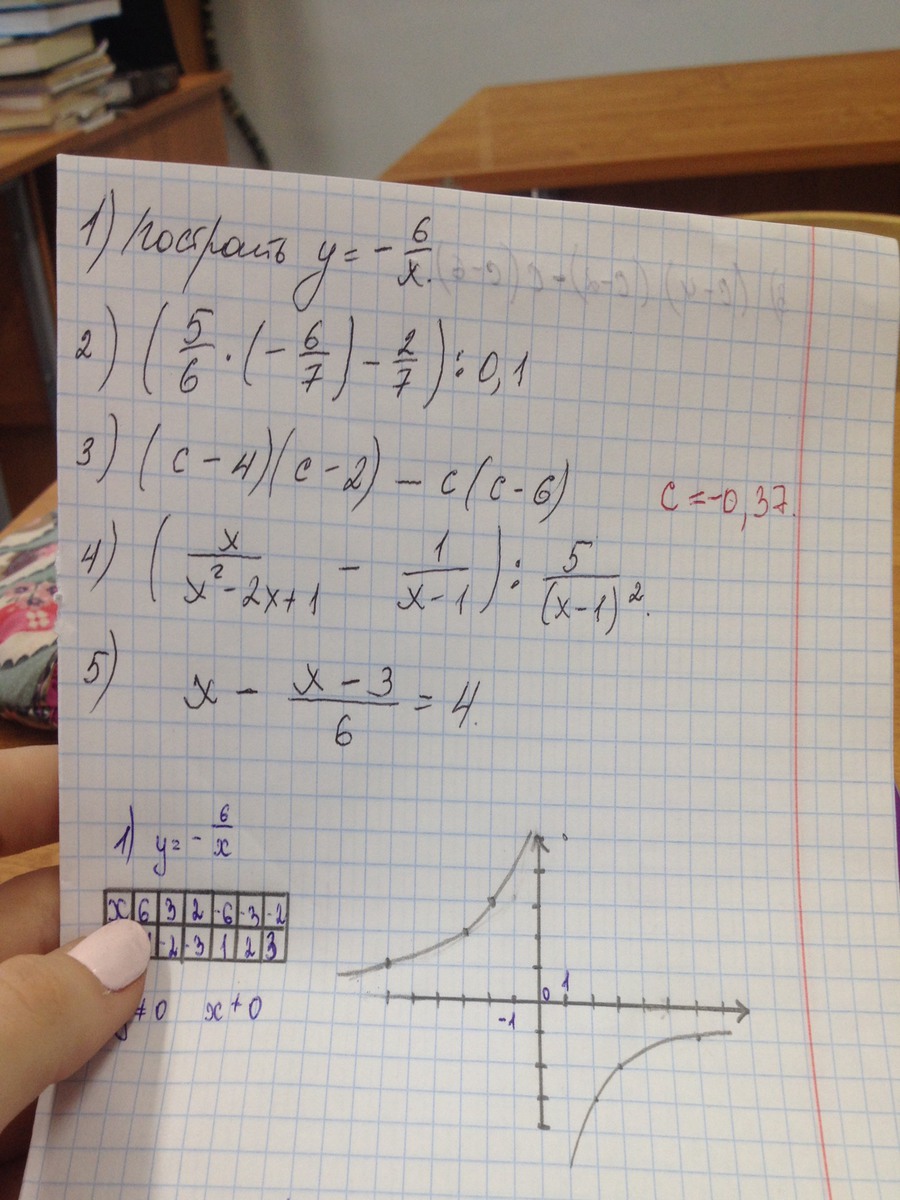 1) Построить y = - 6/x.
2) (5/6 · (- 6/7) - 2/7) : 0,1
3) (c - 4)(c - 2) - c(c - 6) c = -0,37.
4) (x/(x² - 2x + 1) - 1/(x - 1)) : 5/(x - 1)².
5) x - (x - 3)/6 = 4.
1) y = - 6/x
x 6 3 2 -6 -3 -2
-2 -3 1 2 3
≠0 x ≠ 0
1
0
-1